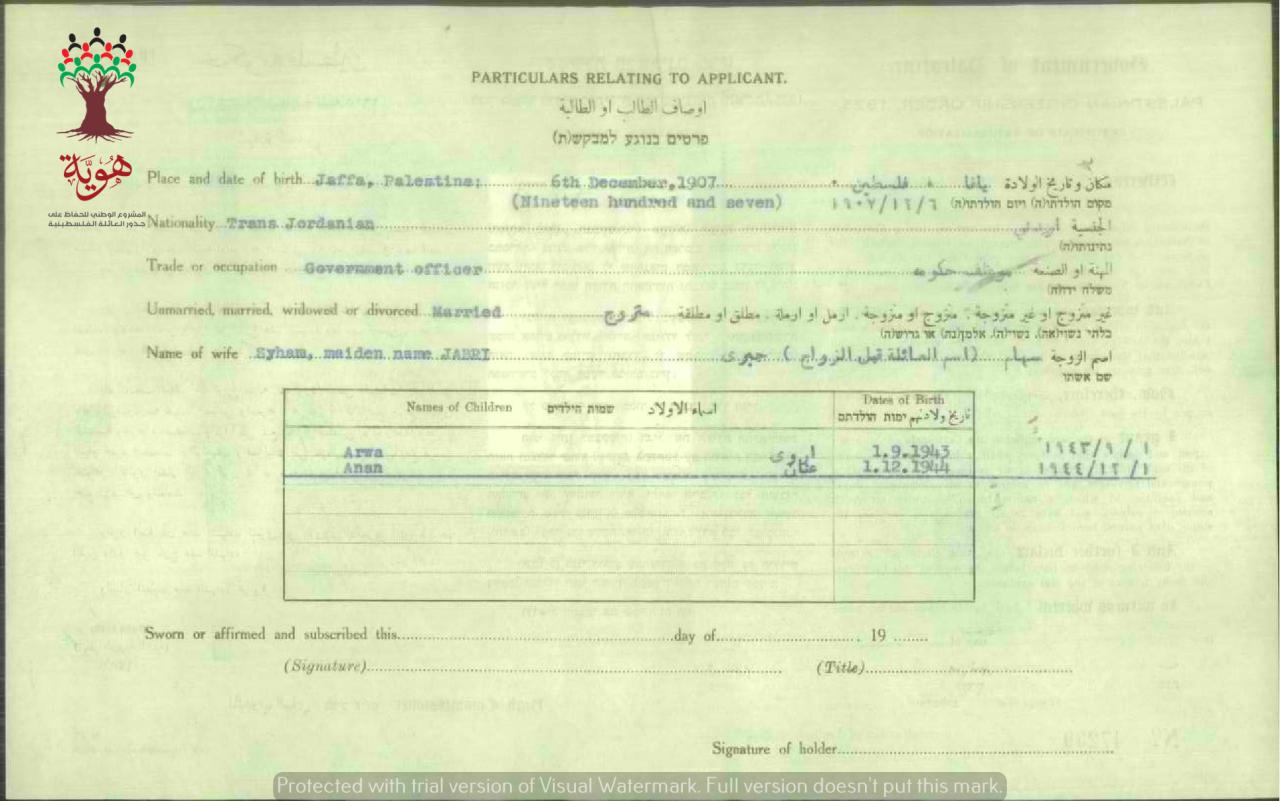 هوية
المشروع الوطني للحفاظ على
جذور العائلة الفلسطينية
PARTICULARS RELATING TO APPLICANT.
اوصاف الطالب او الطالبة
פרטים בנוגע למבקש(ת)
Place and date of birth Jaffa, Palestine; 6th December, 1907 يافا ، فلسطين ، مكان وتاريخ الولادة
(Nineteen hundred and seven) ١٩٠٧/١٢/٦ מקום הולדתו(ה) ויום הולדתו(ה)
Nationality Trans Jordanian الجنسية أردني
נתינותו(ה)
Trade or occupation Government officer المهنة او الصنعة موظف حكومه
משלח ידו(ה)
Unmarried, married, widowed or divorced Married غير متزوج او غير متزوجة ؟ متزوج او متزوجة . ارمل او ارملة . مطلق او مطلقة متزوج
בלתי נשוי(אה), נשוי(ה), אלמן(נה) או גרוש(ה)
Name of wife Syham, maiden name JABRI اسم الزوجة سهام (اسم العائلة قبل الزواج ) جبري
שם אשתו
Names of Children שמות הילדים اسماء الاولاد Dates of Birth
תאריخ ولادتهم ימות הולדתם
Arwa اروى 1.9.1943 ١٩٤٣/٩/١
Anan عنان 1.12.1944 ١٩٤٤/١٢/١
Sworn or affirmed and subscribed this day of 19
(Signature) (Title)
Signature of holder
Protected with trial version of Visual Watermark. Full version doesn't put this mark.